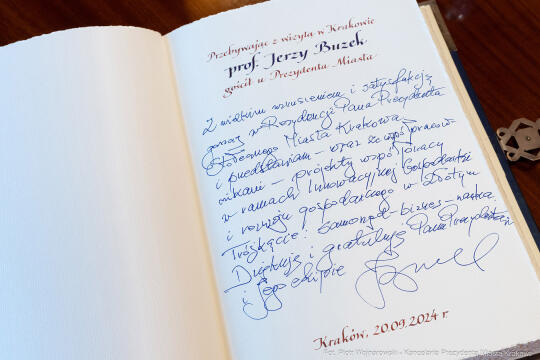 Przebywając z wizytą w Krakowie
prof. Jerzy Buzek
gościł u Prezydenta Miasta
Z wielkim wzruszeniem i satysfakcją
goszczę w Rezydencji Pana Prezydenta
Stołecznego Miasta Krakowa
i przedstawiam – wraz ze współpracow-
nikami – projekty współpracy
w ramach Innowacyjnej Gospodarki
i rozwoju gospodarczego w Złotym
Trójkącie: samorząd – biznes – nauka
Dziękuję i gratuluję Panu Prezydentowi
i Jego ekipie
Kraków, 20.09.2024 r.
Fot. Piotr Wojnarowski - Kancelaria Prezydenta Miasta Krakowa